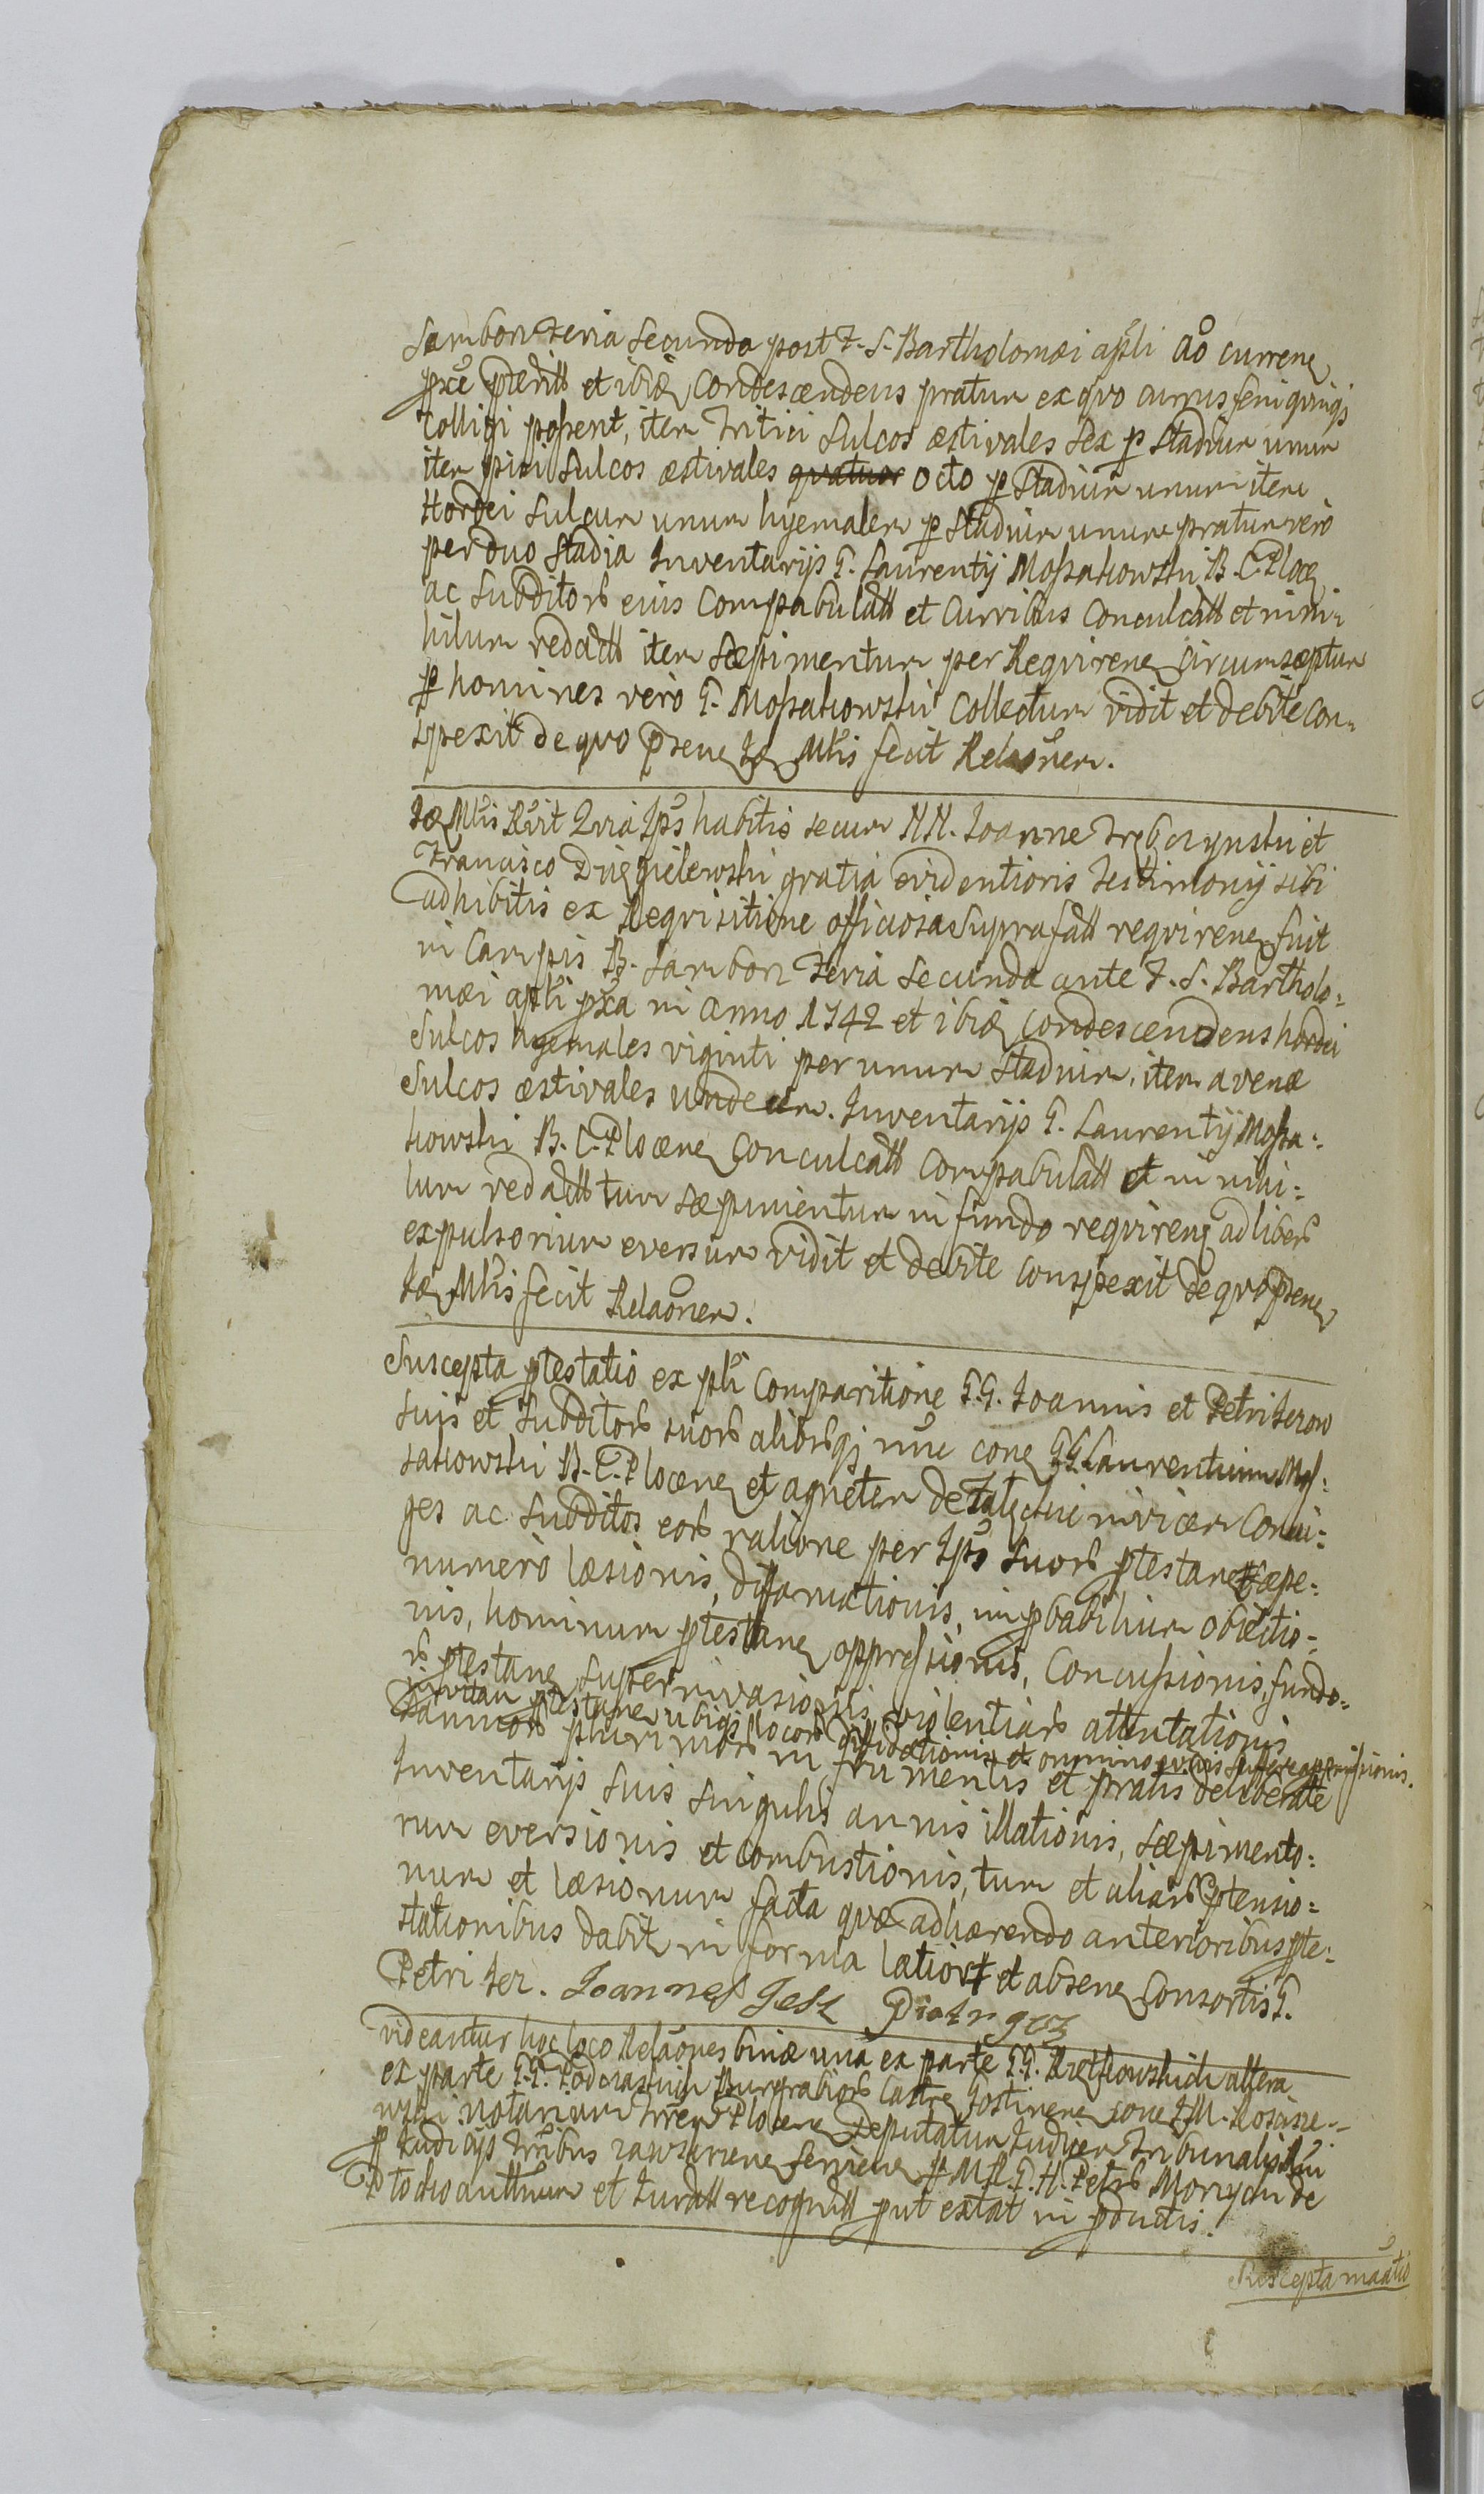 Sambori Feria Secunda post F. S. Bartholomæi apłi ao curren
pxe pterit et ibiq condescendens pratum ex quo currus feni quinqs
colligi possent, item Tritici Sulcos æstivales Sex p Stadium unum
item pisi Sulcos æstivales quatuor octo p Stadium unum item
Hordei Sulcum unum hyemalem p Stadium unum pratum vero
per duo Stadia Inventarijs G. Laurentij Mossakowski B. C. Ploc
ac Subditor eius Compabulatt et Curribus Conculcatt et in ni-
hilum redactt item Sæpimentum per Requiren circumsæptum
p homines vero G. Mossakowski Collectum vidit et debite con-
spexit de quo psen Id Mlis fecit Relaonem.
Id Mlis Rvit Qvia Ips habitis secum NN. Joanne Trębczynski et
Francisco Dzięgielewski gratia evidentioris Testimonij sibi
adhibitis ex Requisitione officiosa Suprafatt requiren fuit
in Campis B. Sambori Feria Secunda ante F. S. Bartholo-
mæi apłi pxa in Anno 1742 et ibiq condescendens hordei
Sulcos hyemales viginti per unum Stadium, item avenæ
Sulcos æstivales undecim. Inventarijs G. Laurentij Mossa-
kowski B. C. Plocen Conculcatt Compabulatt et in nihi-
lum redactt tum sæpimentum in fundo requiren ad liber
expulsorium eversum vidit et debite conspexit de quo psen
Id Mlis fecit Relaonem.
Suscepta ptestatio ex pli Comparitione G.G. Joannis et Petri
suis et Subditor suor aliorqj nne con GG. Laurentium Mos-
sakowski B. C. Plocen et agnetem de invicem Coniu-
ges ac Subditos eor ratione per Ips Suor ptestan sæpe-
numero læsionis, diffamationis, impbabilium obiectio-
nis, hominum ptestan oppressionis, Concussionis, fundo-
r ptestan Superinvasionis violentiar attentationis
in vitam ptestan ubiqs locor diffidationis et omnino
damnor plurimor in frumentis et pratis deliberate
Inventarijs suis singulis annis illationis, sæpimento-
rum eversionis et combustionis, tum et aliar ptensio-
num et læsionum facta quæ adhærendo anterioribus pte-
stationibus dabit in forma latiori et absen Consortis G.
Petri Jez. Joannes Jesz Piotr
videantur hoc loco Relaones binæ una ex parte G.G. altera
ex parte G.G. Burgrabior Castr Gostinen con
notarium Trren Plocen Deputatum Iudicem Tribunalis
p Iudicijs Tribus rawscens Petr Morzycki de
et Iuratt recognitt put extat in pductis.
Rescepta